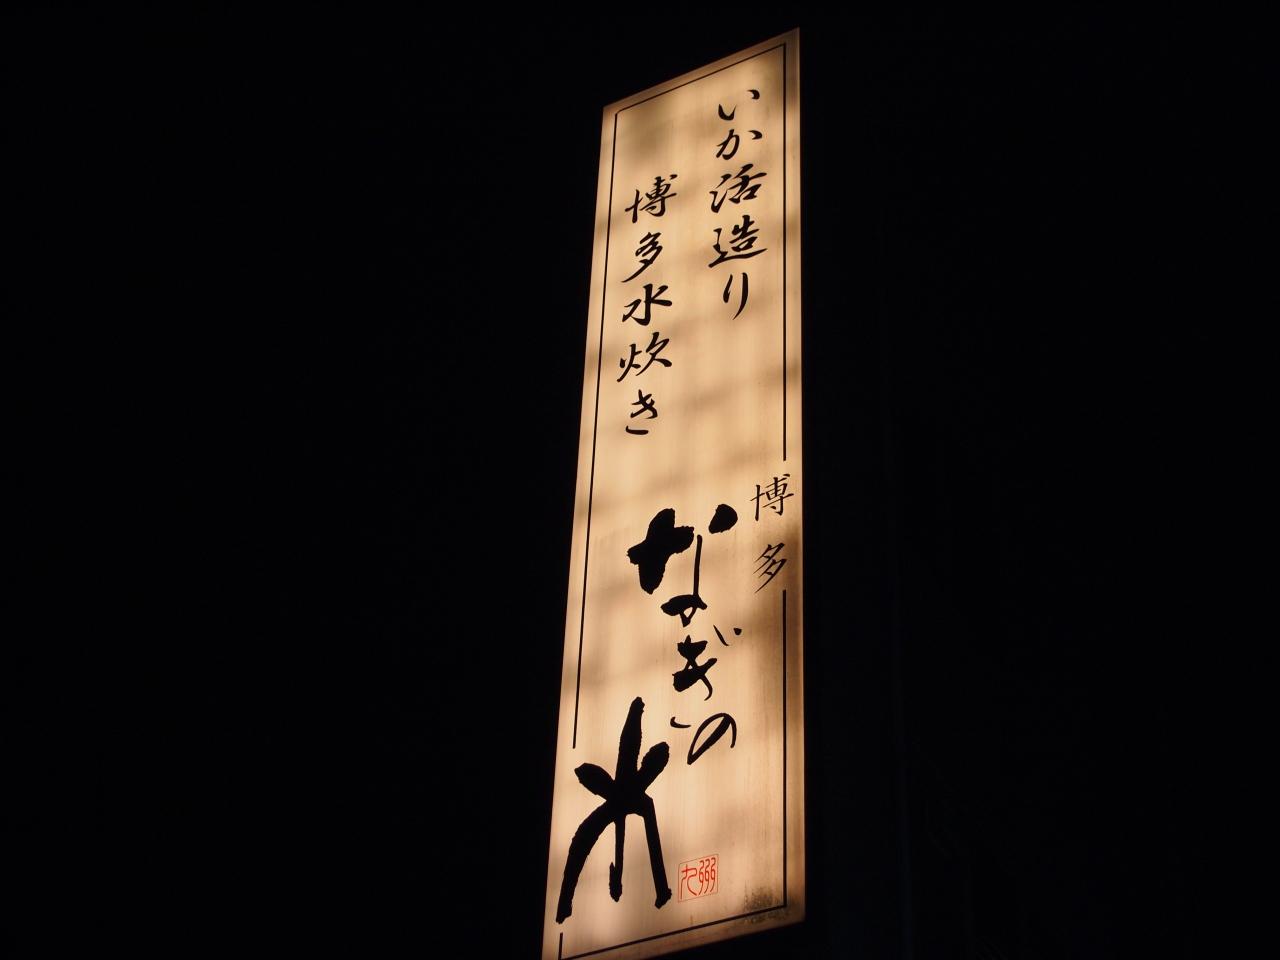 いか活造り
博多水炊き
博多
なぎの木
九州